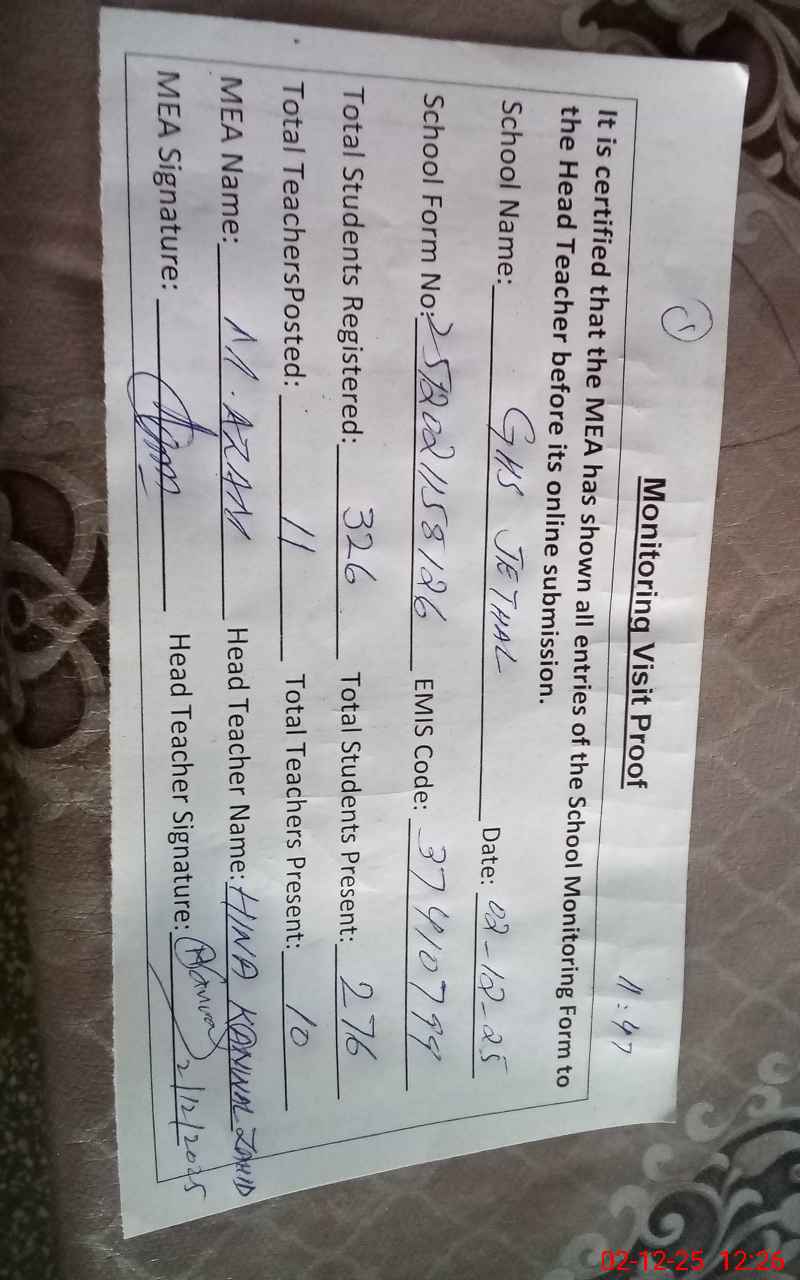 Monitoring Visit Proof
11:47
It is certified that the MEA has shown all entries of the School Monitoring Form to
the Head Teacher before its online submission.
School Name: GHS JETHAL Date: 02-12-25
School Form No: 2572021158126 EMIS Code: 37410799
Total Students Registered: 326 Total Students Present: 276
Total TeachersPosted: 11 Total Teachers Present: 10
MEA Name: M. AZAM Head Teacher Name: HINA KANWAL ZAHID
MEA Signature: Head Teacher Signature: 2/12/2025
02-12-25 12:26